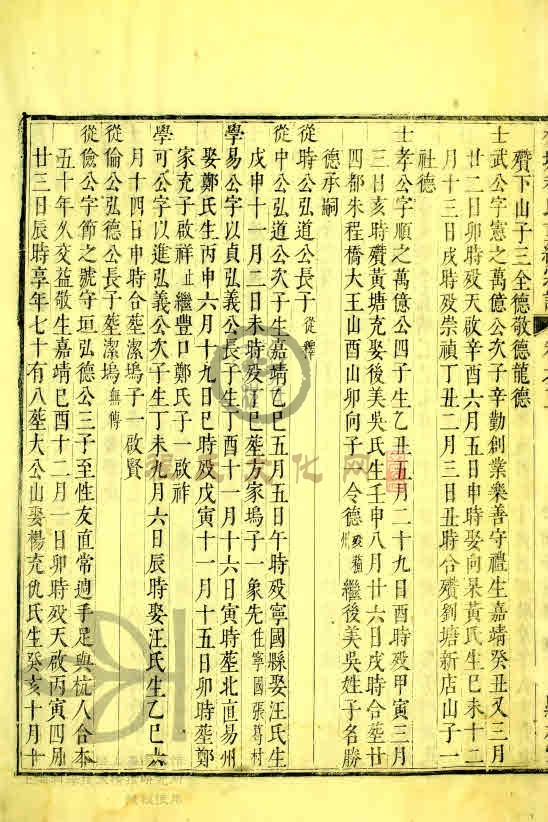 殯下山子三全德敬德龍德
士武公字憲之萬億公次子辛勤創業樂善守禮生嘉靖癸丑又三月
廿二日卯時歿天啟辛酉六月五日申時娶向杲黃氏生己未十二
月十三日戌時歿崇禎丁丑二月三日丑時合殯劉塘新店山子一
社德
士孝公字順之萬億公四子生乙丑五月二十九日酉時歿甲寅三月
三日亥時殯黃塘充娶後美吳氏生壬申八月廿六日戌時合塟廿
四都朱程橋大王山酉卯向子一令德 繼後美吳姓子名勝
德承嗣
從時公弘道公長子
從中公弘道公次子生嘉靖乙巳五月五日午時歿寧國縣娶汪氏生
戊申十一月二日未時歿丁巳塟方家塢子一象先住寧國張葛村
學易公字以貞弘義公長子生丁酉十一月十六日寅時塟北直易州
娶鄭氏生丙申六月十九日巳時歿戊寅十一月十五日卯時塟鄭
家充子啟祥止繼豐口鄭氏子一啟祚
學可公字以進弘義公次子生丁未九月六日辰時娶汪氏生乙巳六
月十四日申時合塟潔塢子一啟賢
從倫公弘德公長子塟潔塢無傳
從儉公字節之號守垣弘德公三子至性友直常週手足與杭人合本
五十年久交益敬生嘉靖己酉十二月一日卯時歿天啟丙寅四月
廿三日辰時享年七十有八塟大公山娶楊充仇氏生癸亥十月十